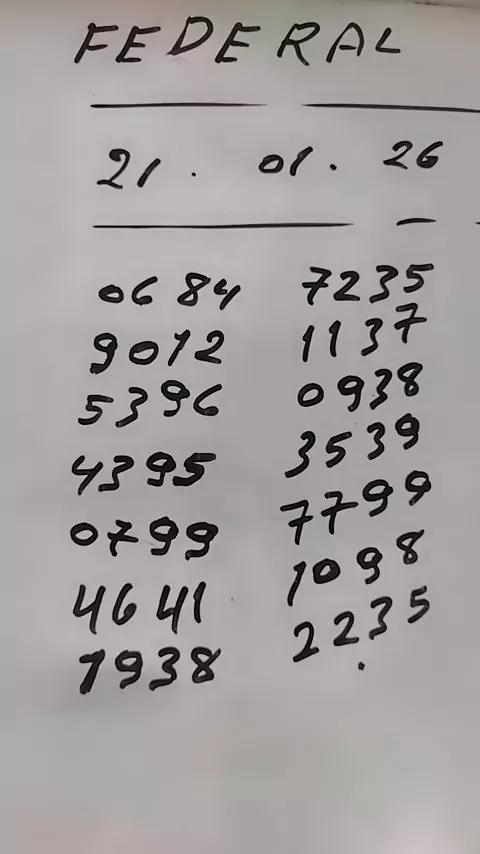 FEDERAL
21. 01. 26
0684 7235
9012 1137
5396 0938
4395 3539
0799 7799
4641 1098
1938 2235.